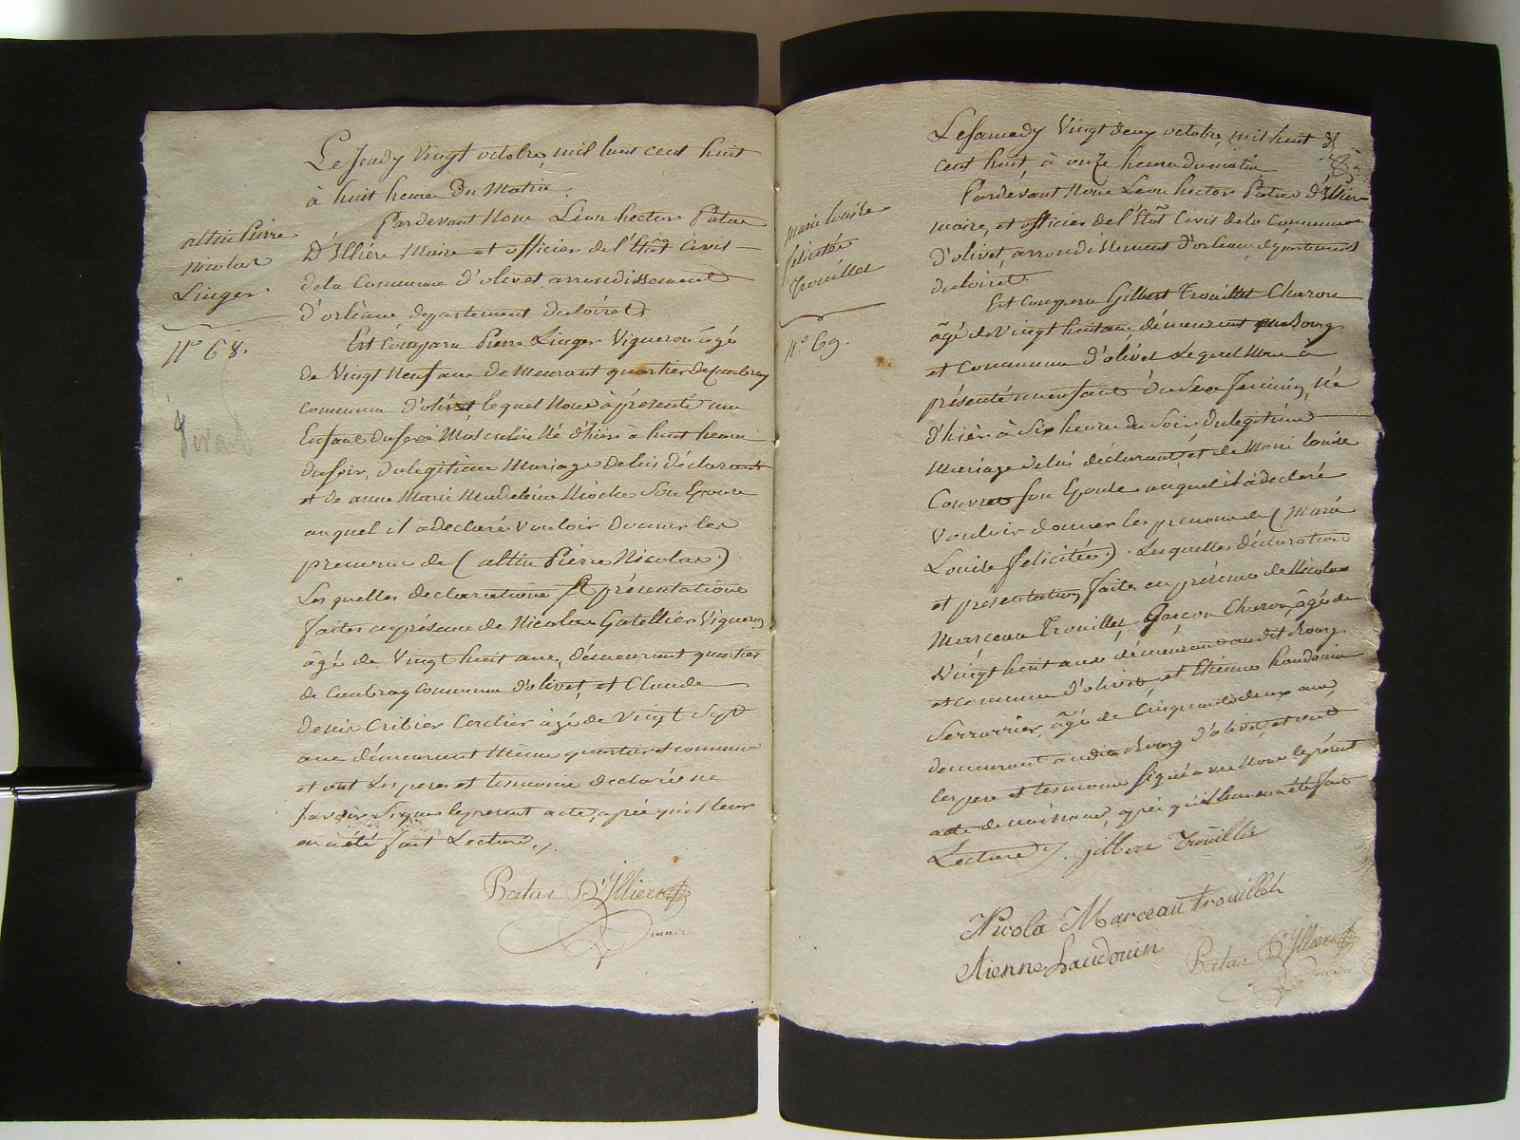 Le Jeudy Vingt octobre mil huit cent huit
à huit heure Du Matin.
Pardevant Nous Léon hector Patas
D'Illiers Maire et officier de l'Etat Civil
de la Commune d'olivet, arrondissement
d'orléans departement du loiret
Est Comparu Pierre Linger Vigneron âgé
de Vingt Neuf ans demeurant quartier de Coubray
commune d'olivet lequel Nous à présenté un
Enfant du sexe Masculin Né d'hier à huit heure
du soir, du legitime Mariage de lui déclarant
et de anne Marie Madeleine Son Epouse
auquel il a declaré Vouloir donner les
prenoms de ( Pierre Nicolas )
Les quelles declarations et présentations
faites en présence de Nicolas Gatellier Vigneron
âgé de Vingt huit ans, demeurant quartier
de Coubray Commune d'olivet, et Claude
Denis Cribier Cordier âgé de Vingt Sept
ans demeurant même quartier et commune
et ont les pere et temoins declarés ne
savoir Signer le present acte, après qu'il leur
en a été fait Lecture ./.
Patas D'Illiers
maire
Pierre
Nicolas
Linger.
N° 68.
Le Samedy Vingt deux octobre mil huit
cent huit à onze heure du matin
Pardevant Nous Leon hector Patas D'Illiers
maire, et officier de l'Etat Civil de la Commune
d'olivet, arrondissement d'orleans departement
du loiret
Est Comparu Gilbert Trouillet Charon
âgé de Vingt huit ans, demeurant au Bourg
et Commune d'olivet Lequel Nous à
présenté un enfant du Sexe feminin, née
d'hier à Six heure du Soir, du legitime
Mariage de lui déclarant, et de Marie louise
Son Epouse auquel il à declaré
Vouloir donner les prenoms de ( Marie
Louise felicitée ). Lesquelles déclaration
et présentation faite en présence de Nicolas
Marceau Trouillet, Garçon Charon, âgé de
Vingt huit ans demeurant audit Bourg
et commune d'olivet et Etienne haudouin
Serrurier, âgé de Cinquante deux ans,
demeurant audit Bourg d'olivet, et ont
les pere et temoins Signé avec Nous le présent
acte de naissance, après qu'il leur en a été fait
Lecture ./. Trouillet
Nicola Marceau trouillet
etienne haudouin Patas D'Illiers
marie louise
felicitée
Trouillet
N° 69.